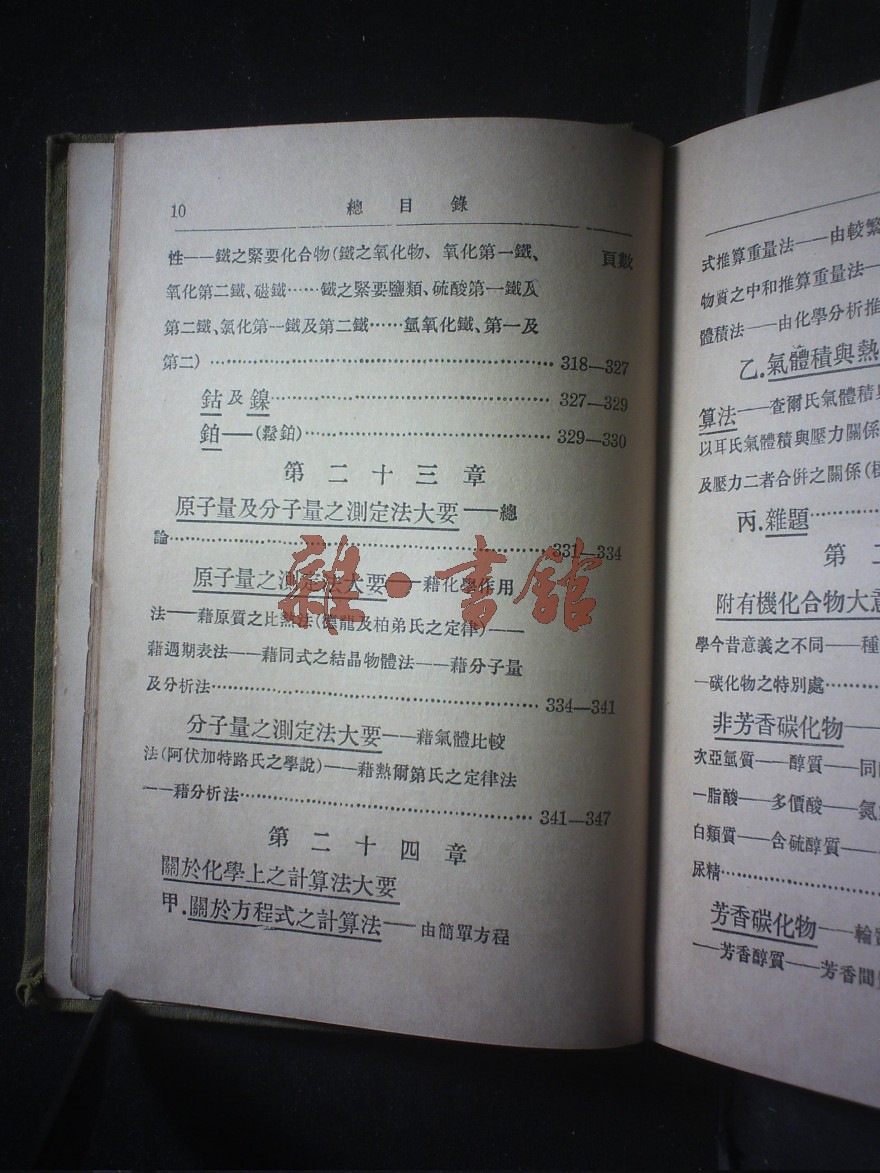 10
總目錄
頁數
性——鐵之緊要化合物(鐵之氧化物、氧化第一鐵、
氧化第二鐵、磁鐵……鐵之緊要鹽類、硫酸第一鐵及
第二鐵、氯化第一鐵及第二鐵……氫氧化鐵、第一及
第二)……318—327
鈷及鎳……327—329
鉑——(鬆鉑)……329—330
第二十三章
原子量及分子量之測定法大要——總
論……331—334
原子量之測定法大要——藉化學作用
法——藉原質之比熱法(德龍及柏弟氏之定律)——
藉週期表法——藉同式之結晶物體法——藉分子量
及分析法……334—341
分子量之測定法大要——藉氣體比較
法(阿伏加特路氏之學說)——藉熱爾第氏之定律法
——藉分析法……341—347
第二十四章
關於化學上之計算法大要
甲.關於方程式之計算法——由簡單方程
雜·書館
式推算重量法——由較繁
物質之中和推算重量法—
體積法——由化學分析推
乙.氣體積與熱
算法——查爾氏氣體積
以耳氏氣體積與壓力關係
及壓力二者合併之關係(
丙.雜題……
第二
附有機化合物大意
學今昔意義之不同——種
—碳化物之特別處……
非芳香碳化物——
次亞氫質——醇質——同
—脂酸——多價酸——氮
白類質——含硫醇質——
尿精……
芳香碳化物——輪
——芳香醇質——芳香間